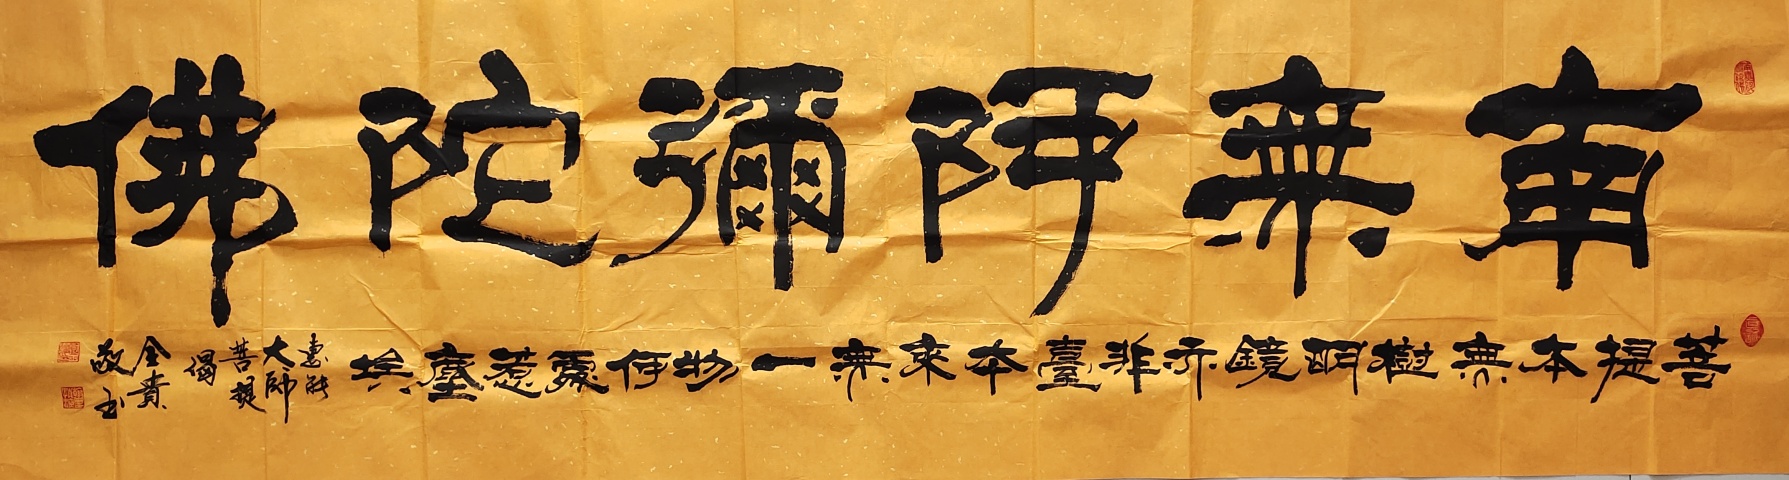 南無阿彌陀佛
菩提本無樹明鏡亦非臺本來無一物何處惹塵埃
惠能
大師
菩提
偈
金貴
敬書